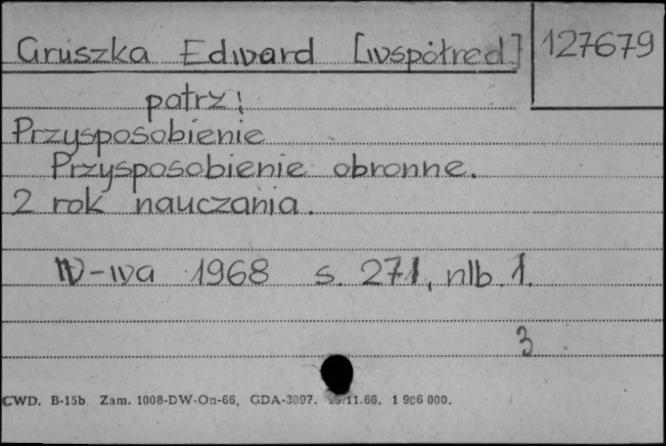 Gruszka Edward [współred.] 127679
patrz:
Przysposobienie
Przysposobienie obronne.
2 rok nauczania.
W-wa 1968 s. 271, nlb. 1.
3
CWD. B-15b Zam. 1008-DW-On-66, GDA-3097. .11.66. 1 906 000.